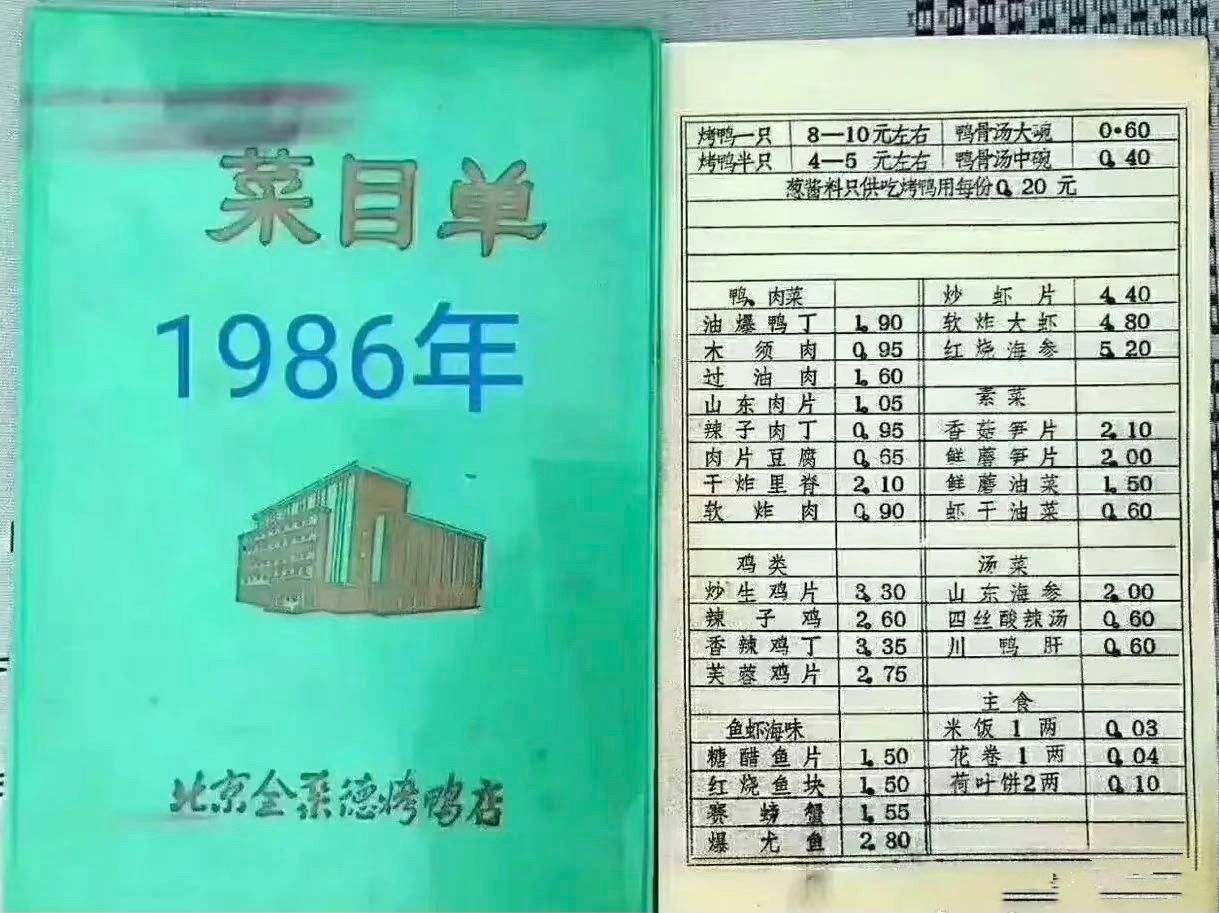 菜目单
1986年
北京全聚德烤鸭店
烤鸭一只 8—10元左右 鸭骨汤大碗 0.60
烤鸭半只 4—5 元左右 鸭骨汤中碗 0.40
葱酱料只供吃烤鸭用每份0.20 元
鸭、肉菜 炒虾片 4.40
油爆鸭丁 1.90 软炸大虾 4.80
木须肉 0.95 红烧海参 5.20
过油肉 1.60
山东肉片 1.05 素菜
辣子肉丁 0.95 香菇笋片 2.10
肉片豆腐 0.65 鲜蘑笋片 2.00
干炸里脊 2.10 鲜蘑油菜 1.50
软炸肉 0.90 虾干油菜 0.60
鸡类 汤菜
炒生鸡片 3.30 山东海参 2.00
辣子鸡 2.60 四丝酸辣汤 0.60
香辣鸡丁 3.35 川鸭肝 0.60
芙蓉鸡片 2.75
主食
鱼虾海味 米饭1两 0.03
糖醋鱼片 1.50 花卷1两 0.04
红烧鱼块 1.50 荷叶饼2两 0.10
赛螃蟹 1.55
爆尤鱼 2.80